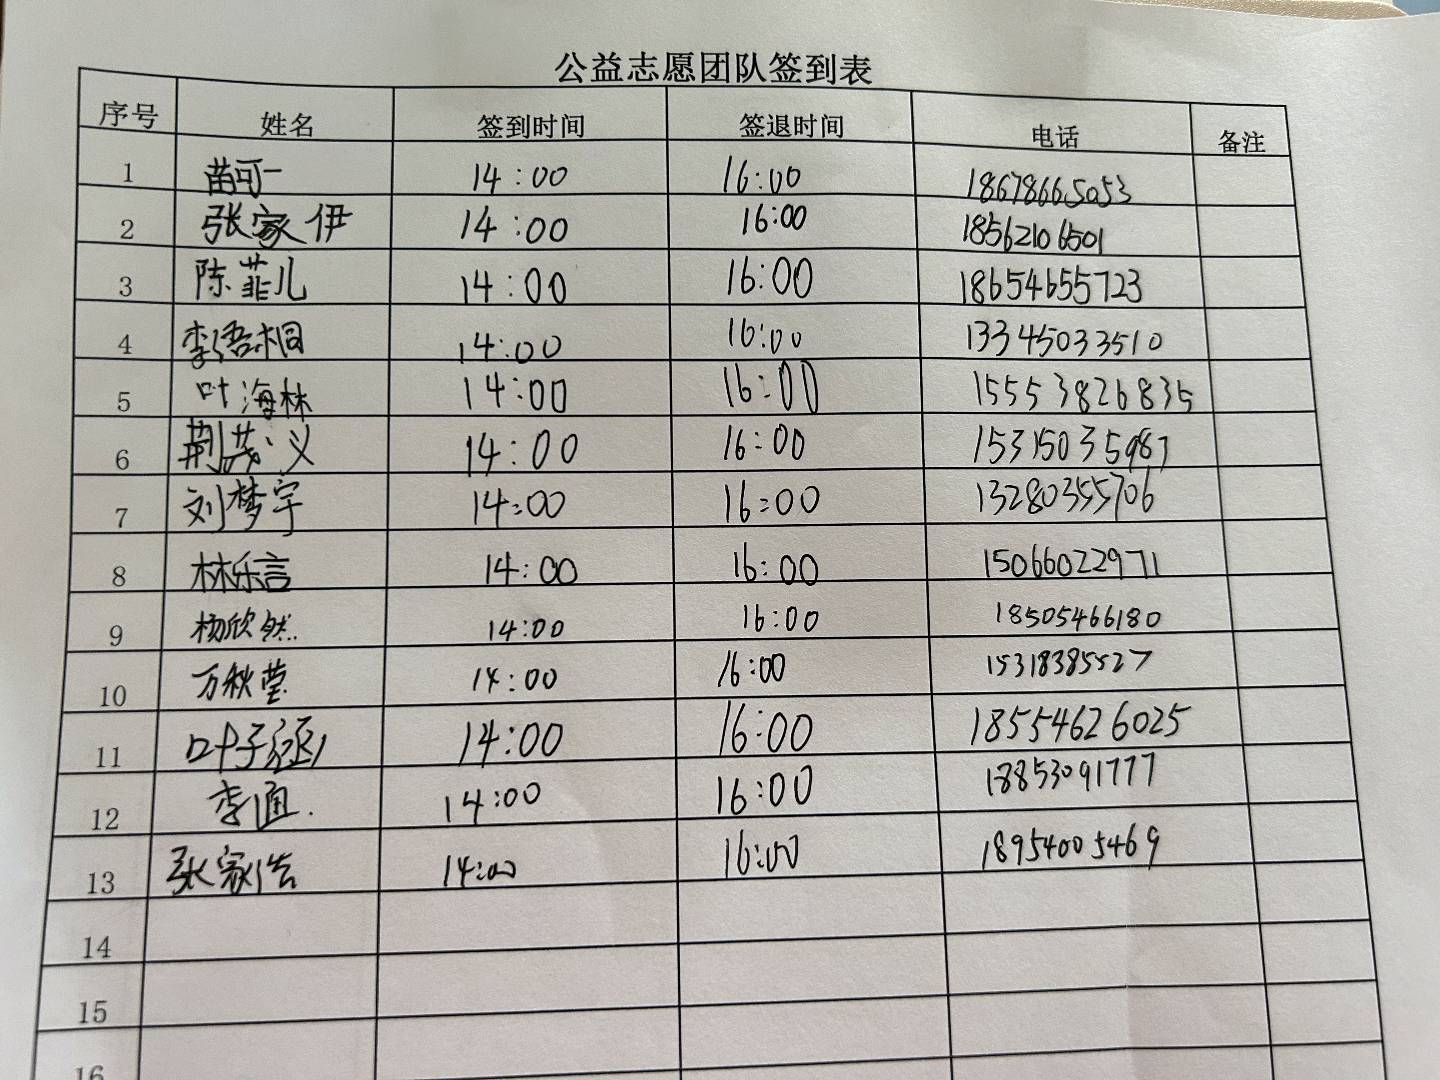 公益志愿团队签到表
序号 姓名 签到时间 签退时间 电话 备注
1 苗可一 14:00 16:00 18678665053
2 张家伊 14:00 16:00 18562106501
3 陈菲儿 14:00 16:00 18654655723
4 李语桐 14:00 16:00 13345033510
5 叶海林 14:00 16:00 15553826835
6 荆茂义 14:00 16:00 15315035987
7 刘梦宇 14:00 16:00 13280355706
8 林乐言 14:00 16:00 15066022971
9 杨欣然 14:00 16:00 18505466180
10 万秋莹 14:00 16:00 15318385527
11 叶子涵 14:00 16:00 18554626025
12 李通 14:00 16:00 18853091777
13 张家浩 14:00 16:00 18954005469
14
15
16